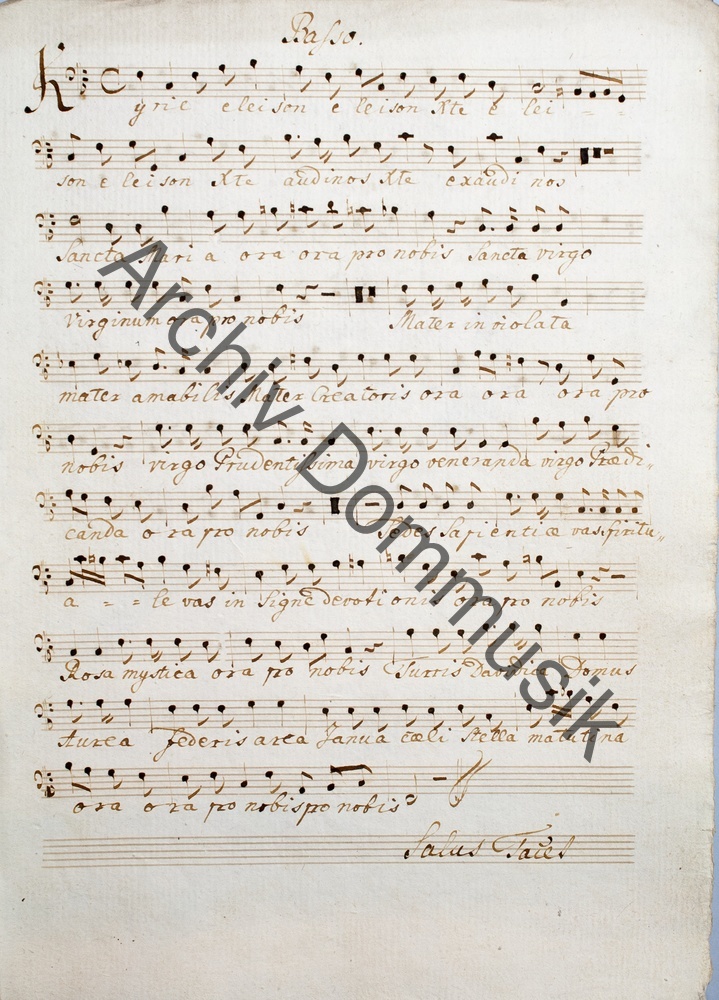 Basso.
Kyrie eleison eleison Xte elei - -
son eleison Xte audi nos Xte exaudi nos
Sancta Maria ora ora pro nobis Sancta virgo
Virginum ora pro nobis Mater inviolata
mater amabilis Mater Creatoris ora ora ora pro
nobis virgo Prudentissima virgo veneranda virgo Prædi„
canda ora pro nobis Sedes Sapientiæ vas spiritu„
a - - = le vas insigne devotionis ora pro nobis
Rosa mystica ora pro nobis Turris Davidica Domus
Aurea federis arca Janua cœli Stella matutina
ora ora pro nobis pro nobis
Salus Tacet
Archiv Dommusik